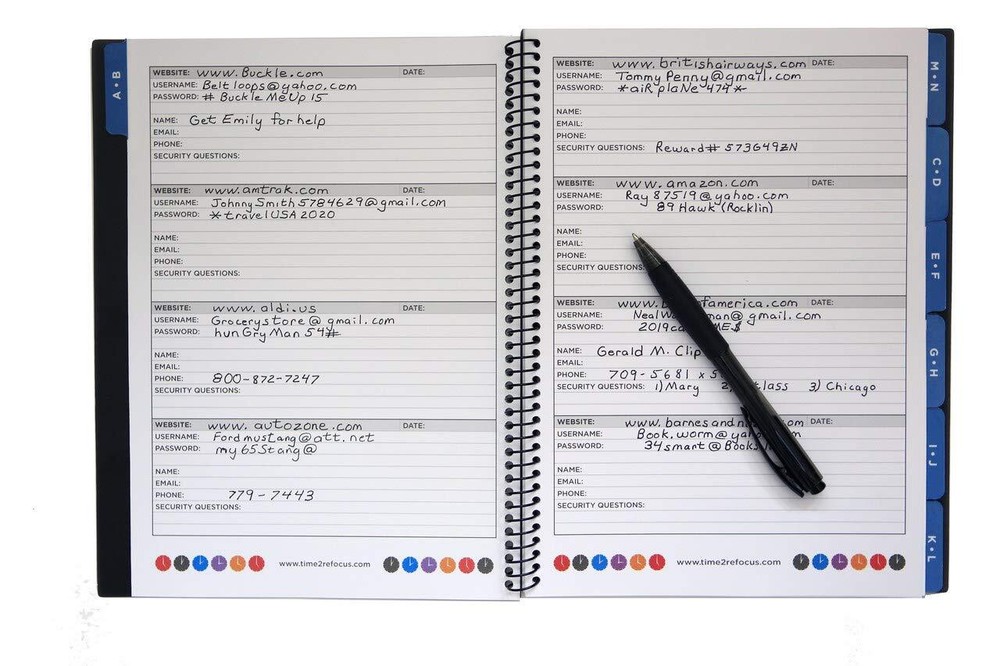 A•B
WEBSITE: www.Buckle.com DATE:
USERNAME: Beltloops@yahoo.com
PASSWORD: # BuckleMeUp 15
NAME: Get Emily for help
EMAIL:
PHONE:
SECURITY QUESTIONS:
WEBSITE: www.amtrak.com DATE:
USERNAME: JohnnySmith5784629@gmail.com
PASSWORD: *travelUSA2020
NAME:
EMAIL:
PHONE:
SECURITY QUESTIONS:
WEBSITE: www.aldi.us DATE:
USERNAME: Grocerystore@gmail.com
PASSWORD: hunGryMan 54#
NAME:
EMAIL:
PHONE: 800-872-7247
SECURITY QUESTIONS:
WEBSITE: www.autozone.com DATE:
USERNAME: Fordmustang@att.net
PASSWORD: my65Stang@
NAME:
EMAIL:
PHONE: 779-7443
SECURITY QUESTIONS:
www.time2refocus.com
WEBSITE: www.britishairways.com DATE:
USERNAME: TommyPenny@gmail.com
PASSWORD: *aiRplaNe474*
NAME:
EMAIL:
PHONE:
SECURITY QUESTIONS: Reward# 573649ZN
WEBSITE: www.amazon.com DATE:
USERNAME: Ray87519@yahoo.com
PASSWORD: 89 Hawk (Rocklin)
NAME:
EMAIL:
PHONE:
SECURITY QUESTIONS:
WEBSITE: DATE:
USERNAME:
PASSWORD:
NAME: Gerald M.
EMAIL:
PHONE: 709-5681 x
SECURITY QUESTIONS: 1) Mary 3) Chicago
WEBSITE: DATE:
USERNAME:
PASSWORD:
NAME:
EMAIL:
PHONE:
SECURITY QUESTIONS:
www.time2refocus.com
M•N
C•D
E•F
G•H
I•J
K•L